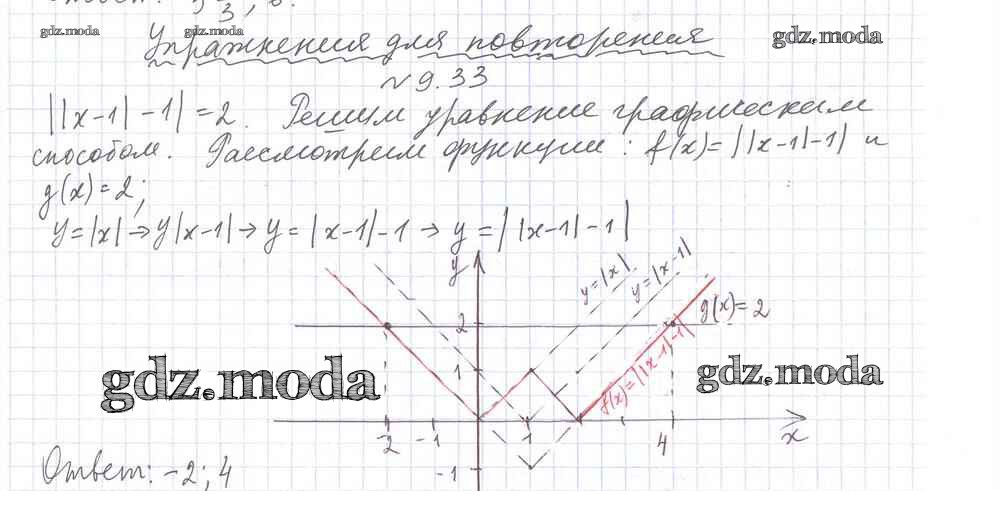 gdz.moda gdz.moda
Упражнения для повторения
N 9.33
||x-1|-1|=2. Решим уравнение графическим
способом. Рассмотрим функции: f(x)=||x-1|-1| и
g(x)=2;
y=|x|→y|x-1|→y=|x-1|-1→y=||x-1|-1|
y
y=|x|
y=|x-1|
g(x)=2
2
f(x)=||x-1|-1|
1
gdz.moda gdz.moda
-2 -1 1 4 x
-1
Ответ: -2; 4